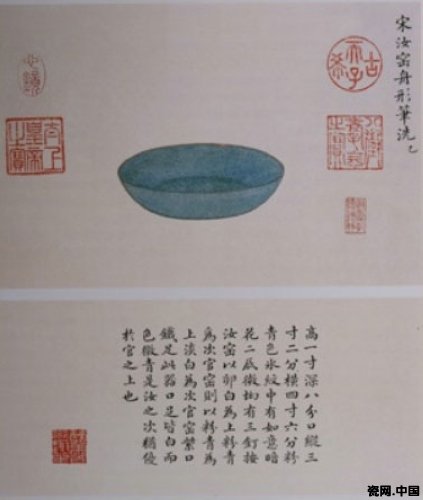 宋汝窰舟形筆洗
古希天子
八徵耄念之寶
太上皇帝之寶
高一寸深八分口縱三
寸二分橫四寸六分粉
青色氷紋中有如意暗
花二底微坳有三釘按
汝窰以卵白為上粉青
為次官窰則以粉青為
上淡白為次官窰紫口
鐵足此器口足皆白而
色微青是汝之次稍優
於官之上也
瓷网.中国